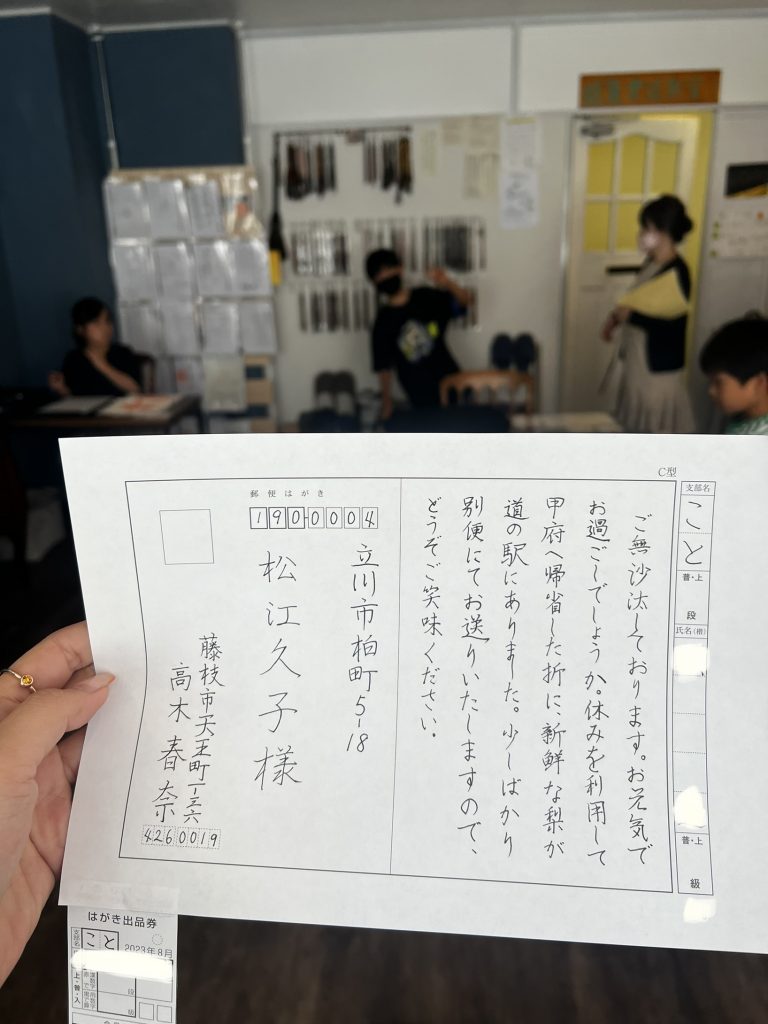 C型
支部名
こと
普・上
段
氏名(楷)
普・上
級
ご無沙汰しております。お元気で
お過ごしでしょうか。休みを利用して
甲府へ帰省した折に、新鮮な梨が
道の駅にありました。少しばかり
別便にてお送りいたしますので、
どうぞご笑味ください。
郵便はがき
190-0004
立川市柏町5-18
松江久子様
藤枝市天王町一-三-六
高木春奈
4260019
はがき出品券
支部名
こと
2023年8月
上・普・入
段
級